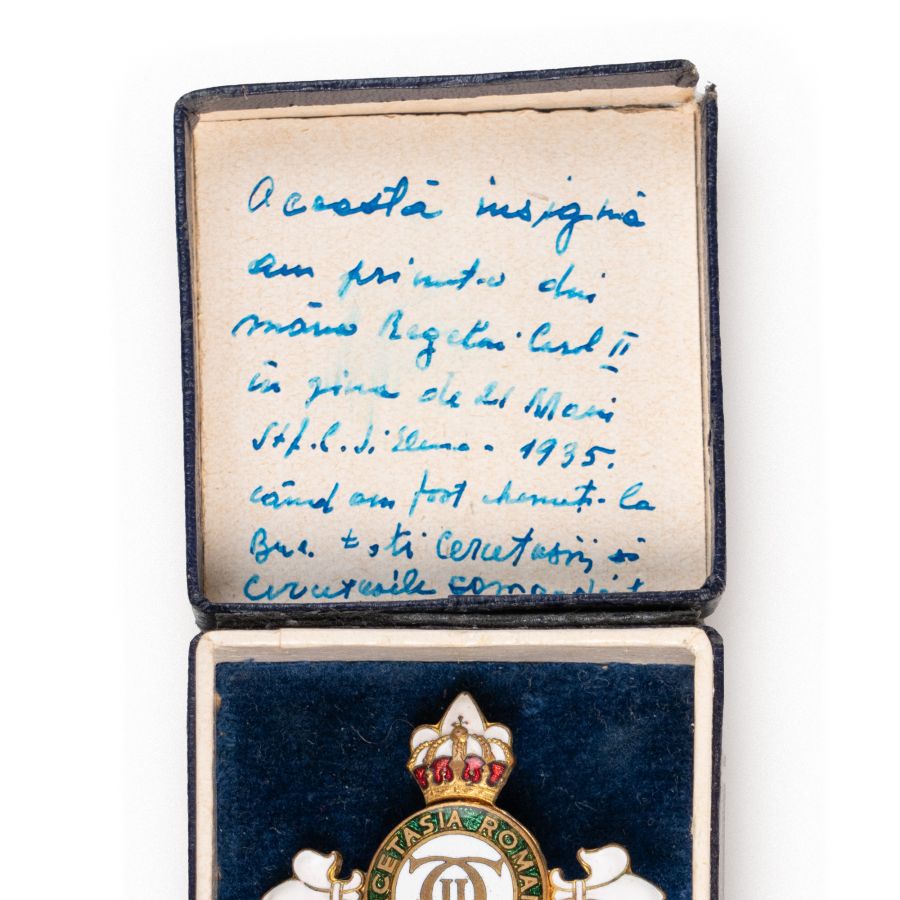 Această insignă
am primit-o din
mâna Regelui Carol II
în ziua de 21 Mai
Sf. C. și Elena - 1935.
când am fost chemați la
Buc. toți Cercetașii și
cercetașile comandant
CETASIA ROMAN
II